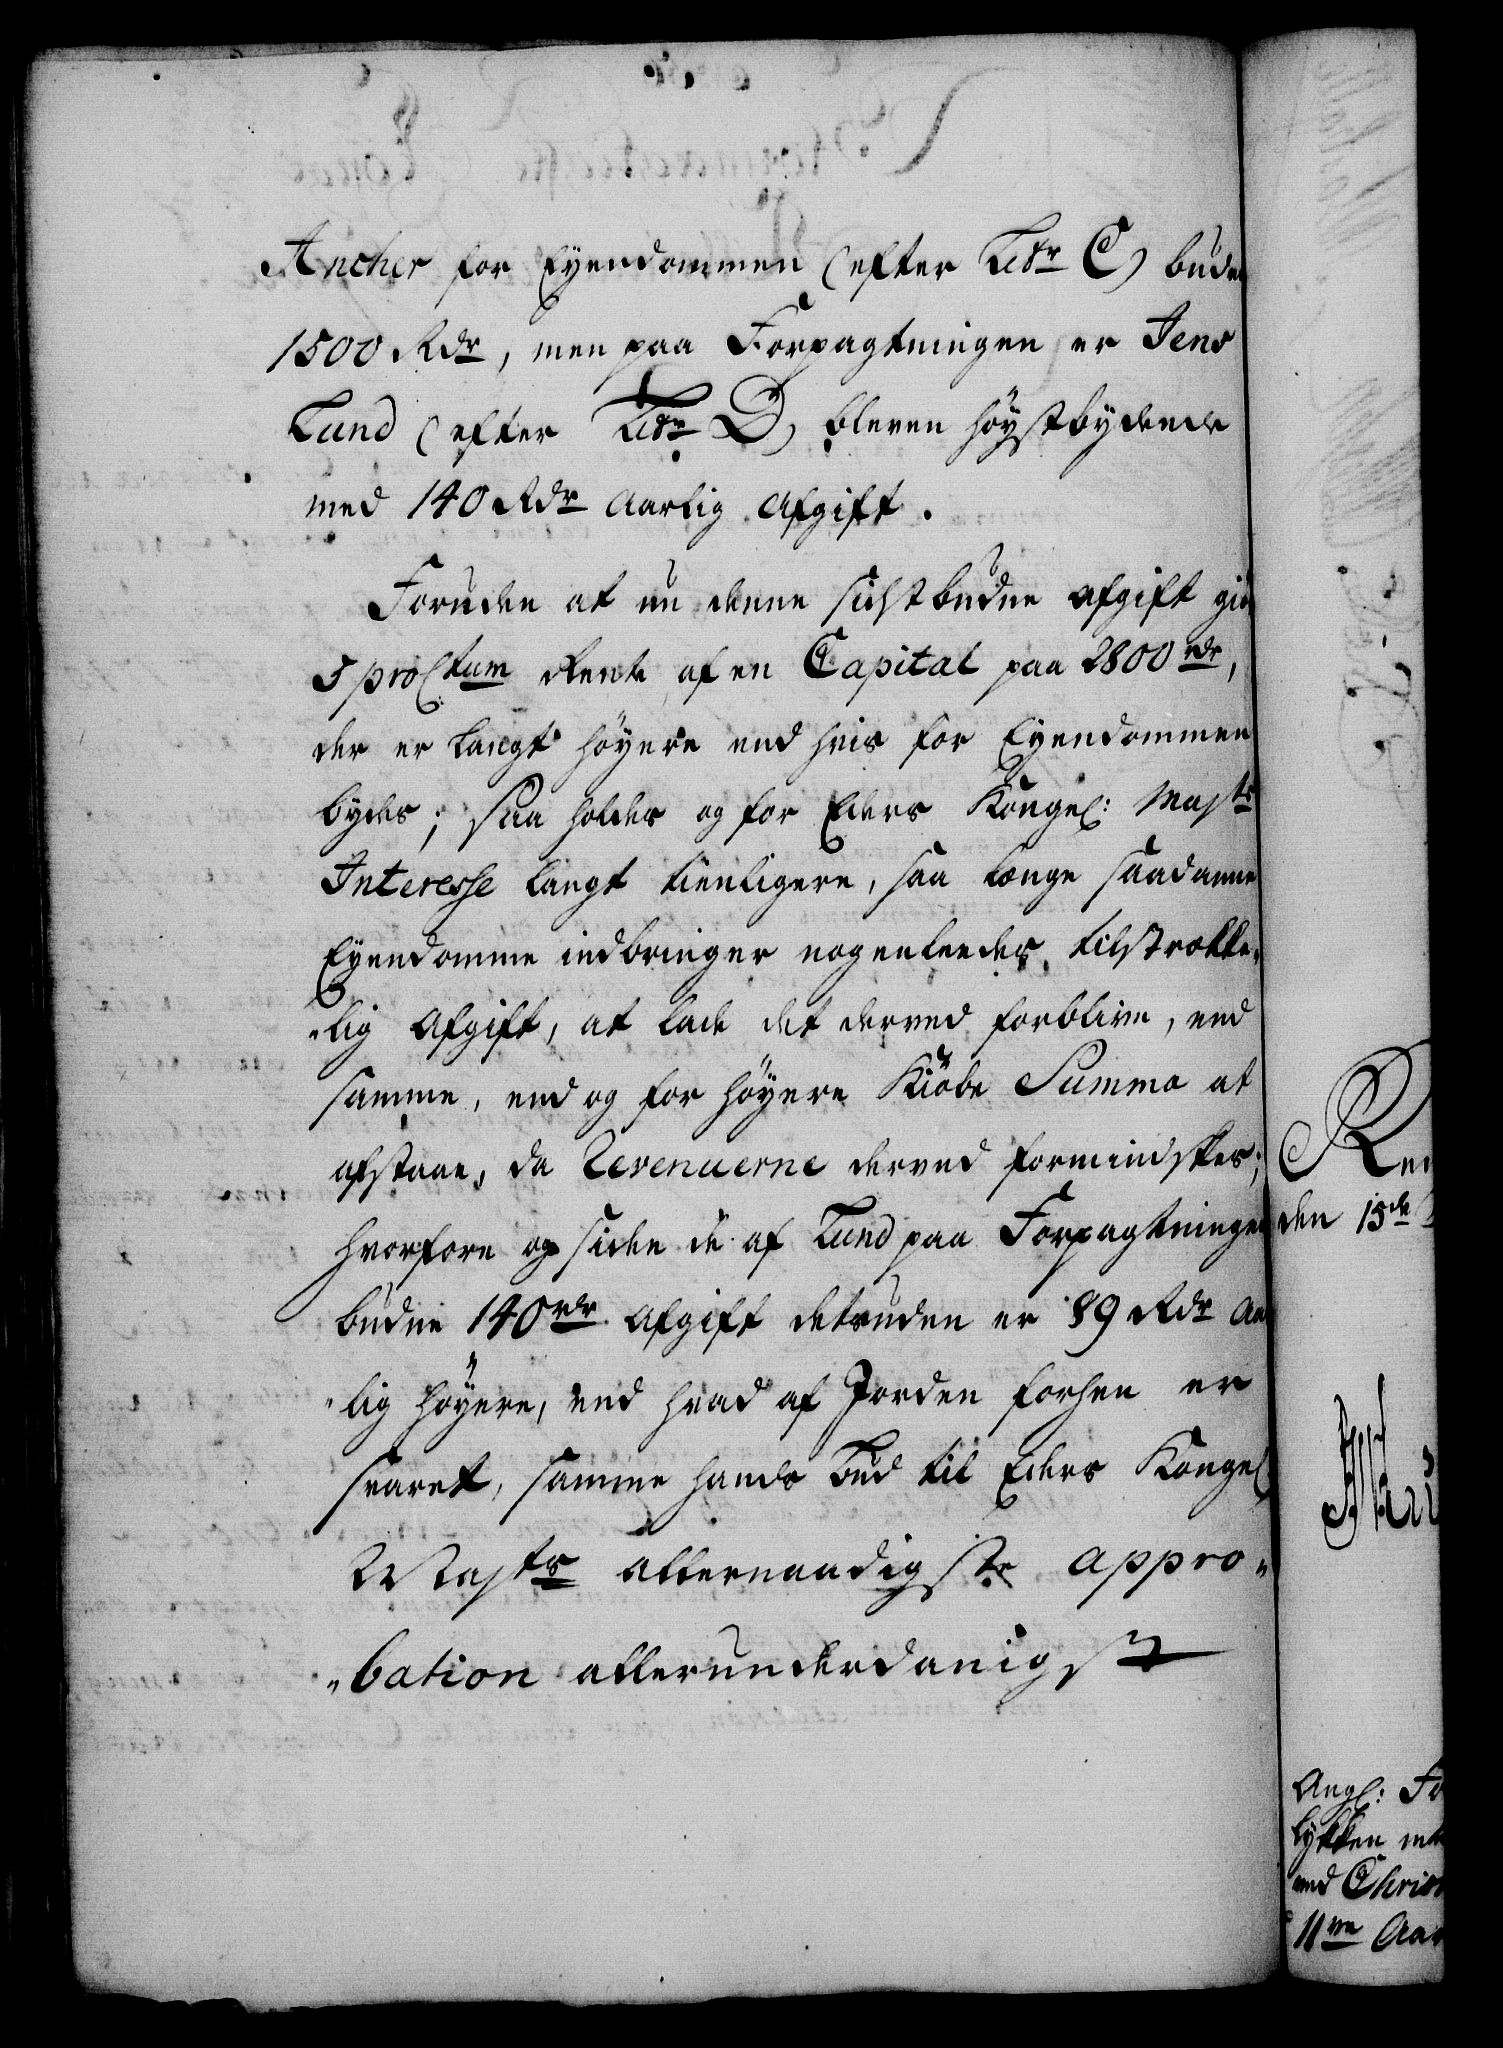 Ancher for Eyendommen (efter Litr C) buden
1500 Rdr, men paa Forpagtningen er Jens
Lund (efter Litr D) bleven høystbydende
med 140 Rdr aarlig Afgift.
Foruden at nu denne sidst budne afgift giør
5 proCtum Rente af en Capital paa 2800 rdr,
der er langt høyere end hvis for Eyendommen
bydes; Saa holdes og for Eders Kongel: Majts
Interesse langt tienligere, saa længe saadanne
Eyendomme indbringer nogenleedes tilstrække„
„lig Afgift, at lade det derved forblive, end
samme, end og for høyere Kiøbe Summa at
afstaae, da Revenuerne derved formindskes;
hvorfore og siden de af Lund paa Forpagtningen
budne 140 rdr Afgift desuden er 89 Rdr aar
„lig høyere, end hvad af Jorden forhen er
svaret, samme hands bud til Eders Kongel
Majts allernaadigste appro„
„bation allerunderdanigst
Ren
den 15de
Angl: Fo
lykken
ved Chris
11ve Aar